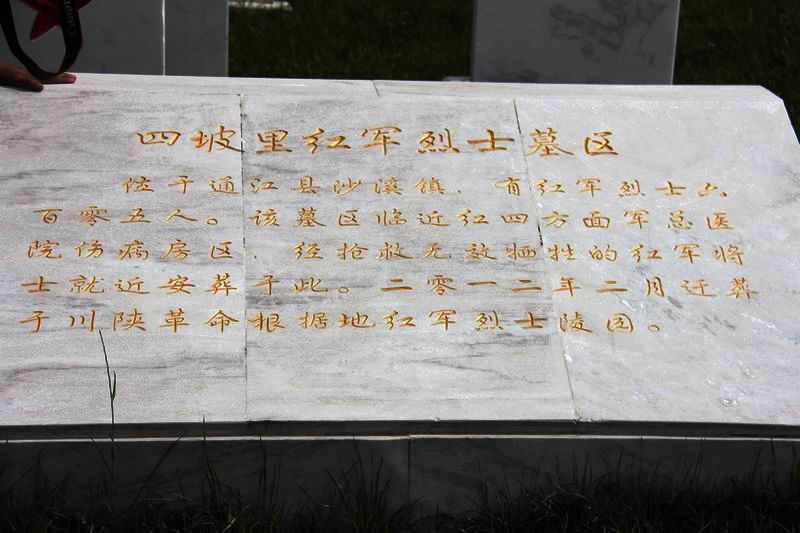 四坡里红军烈士墓区
位于通江县沙溪镇，有红军烈士六
百零五人。该墓区临近红四方面军总医
院伤病房区，经抢救无效牺牲的红军将
士就近安葬于此。二零一二年二月迁葬
于川陕革命根据地红军烈士陵园。